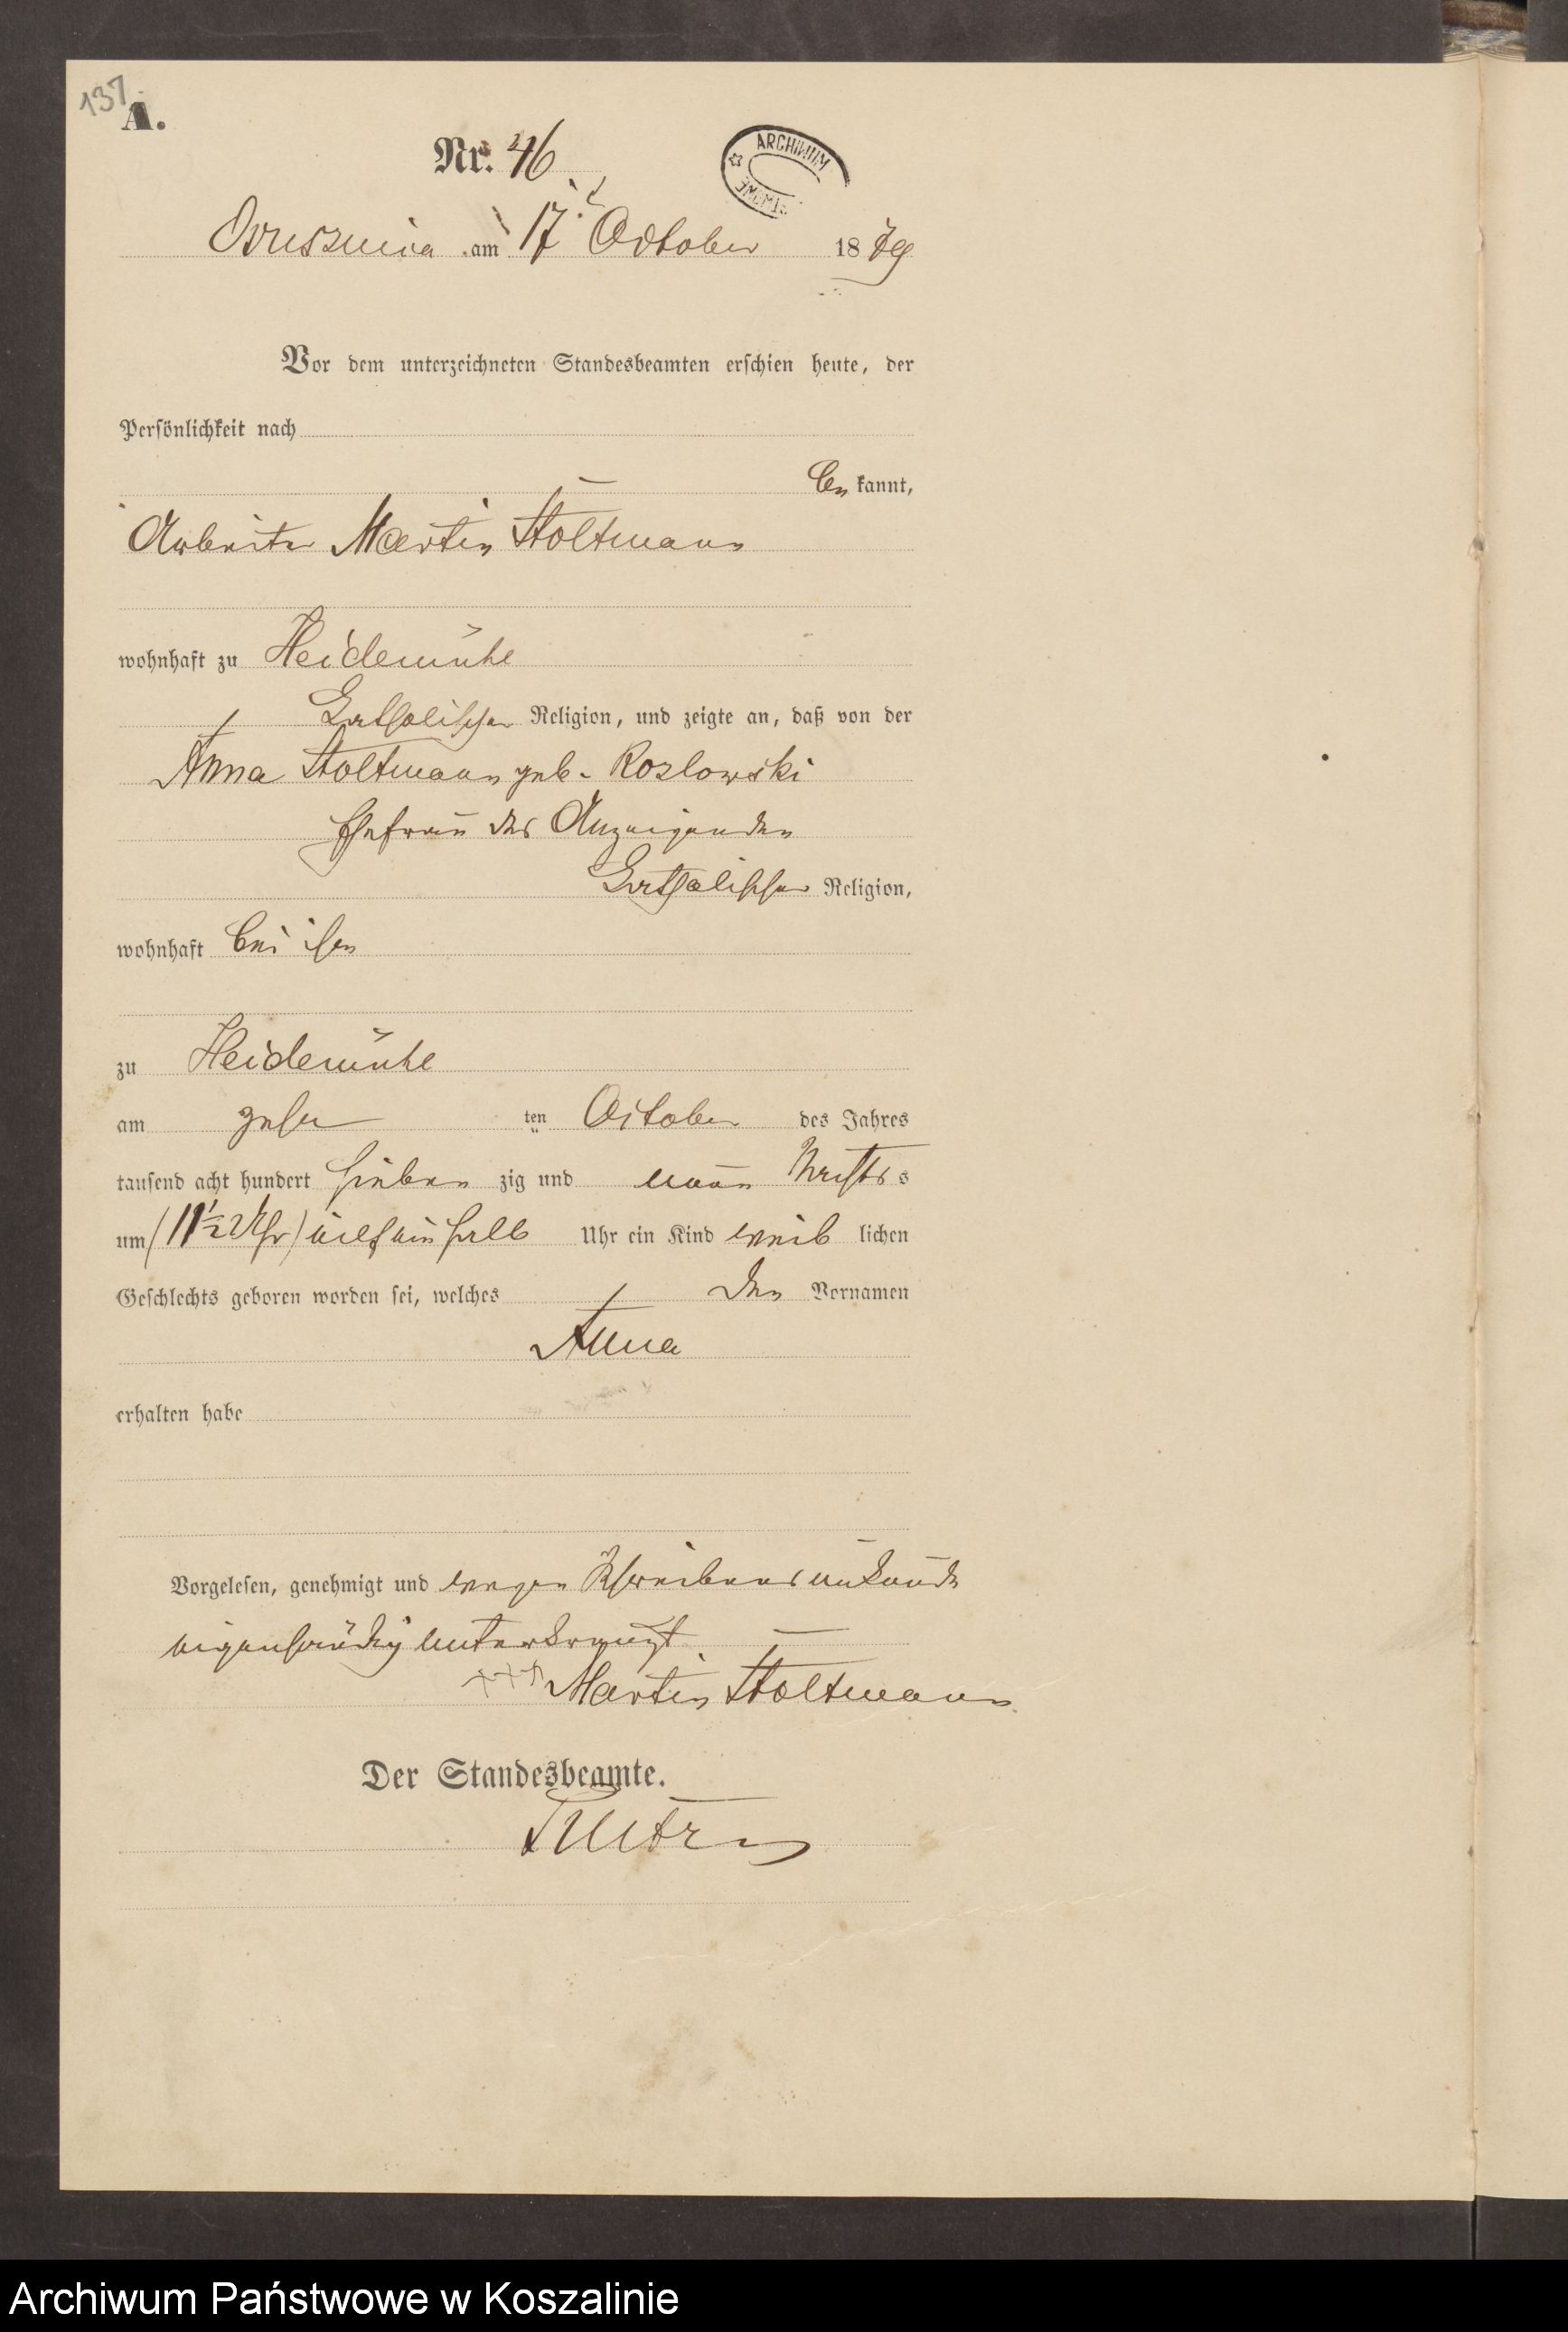 137
A.
Nr. 46
ARCHIWUM
am 17. October 1879
Vor dem unterzeichneten Standesbeamten erschien heute, der
Persönlichkeit nach
be kannt,
Arbeiter Martin Stoltmann
wohnhaft zu Heidemühl
katholischer Religion, und zeigte an, daß von der
Anna Stoltmann geb. Kozlowski
Ehefrau des Anzeigenden
katholischer Religion,
wohnhaft bei ihm
zu Heidemühl
am zehn ten October des Jahres
tausend acht hundert sieben zig und neun Nachts
um (11½ Uhr) elf ein halb Uhr ein Kind weib lichen
Geschlechts geboren worden sei, welches den Vornamen
Anna
erhalten habe
Vorgelesen, genehmigt und wegen Schreibensunkunde
eigenhändig unterkreuzt
xxx Martin Stoltmann
Der Standesbeamte.
Archiwum Państwowe w Koszalinie